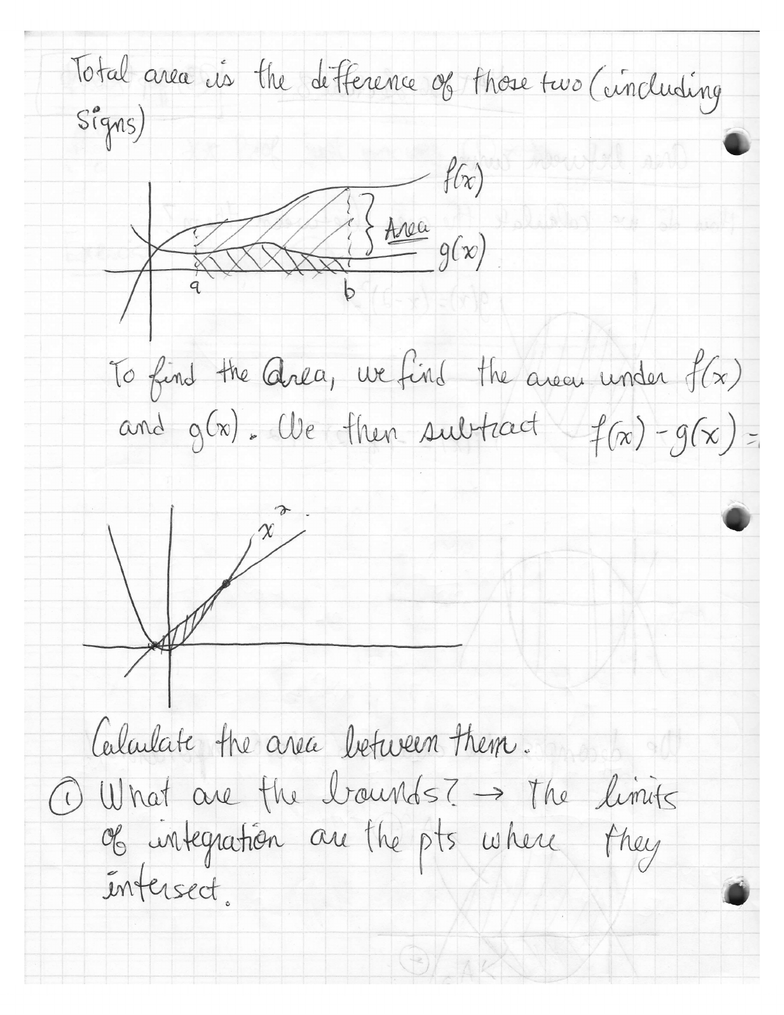 Total area is the difference of those two (including
signs)
f(x)
Area
g(x)
a
b
To find the Area, we find the area under f(x)
and g(x). We then subtract f(x) - g(x) =
x²
Calculate the area between them.
① What are the bounds? → The limits
of integration are the pts where they
intersect.